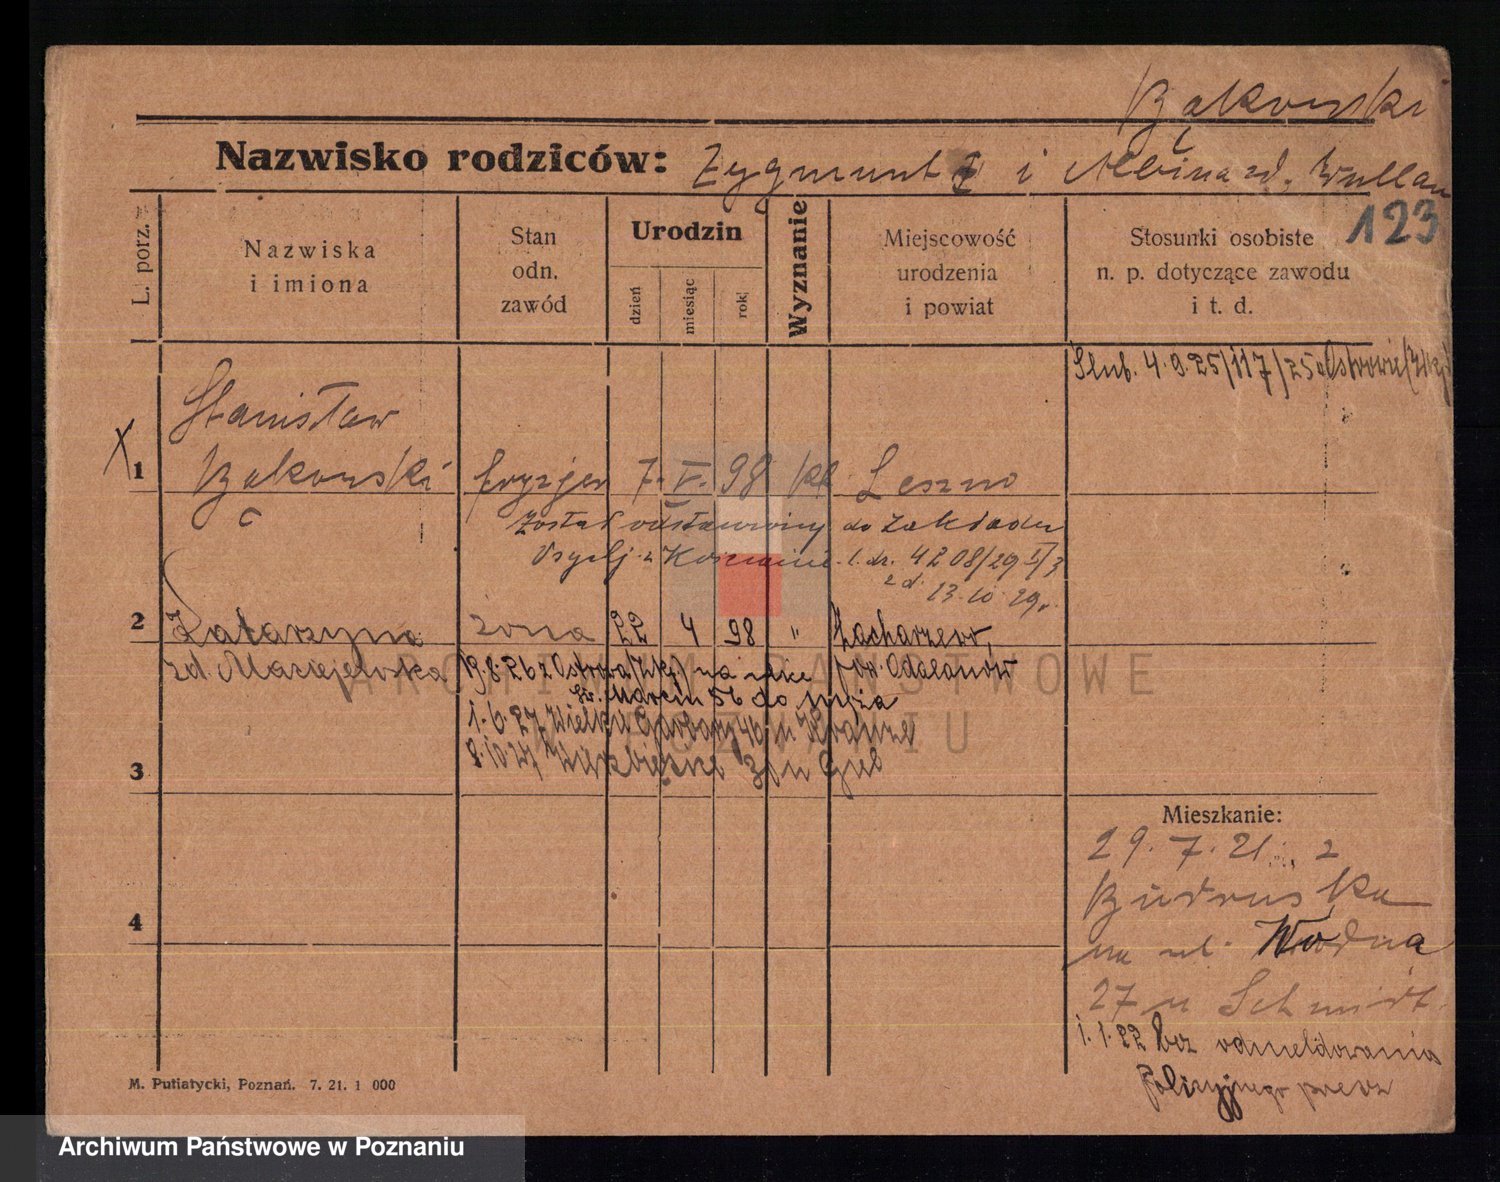 Bąkowski
Nazwisko rodziców: Zygmunt i Albina zd. Wullau
123
L. porz.
Nazwiska
i imiona
Stan
odn.
zawód
Urodzin
dzień
miesiąc
rok
Wyznanie
Miejscowość
urodzenia
i powiat
Stosunki osobiste
n. p. dotyczące zawodu
i t. d.
Ślub. 4.9.25/117/25 Ostrowie
X 1 Stanisław
Bąkowski fryzjer 7. V. 98 kat. Leszno
Został odstawiony do Zakładu
Psych. w Kościanie l. dz. 4208/29 II/3
z d. 13.10.29r.
2 Katarzyna żona 22 4 98 " Zacharzew,
zd. Maciejewska pow. Odolanów
19.8.26 z Ostrowa (Wlkp) na ulice
Św. Marcin 56 do męża
1.6.27 Wielkie Garbary 40 u Krause
8.10.27 Wierzbięcice 31 u
3
4
Mieszkanie:
29.7.21. z
na ul. Wodna
27 u Schmidt.
1.1.22 bez odmeldowania
policyjnego precz
M. Putiatycki, Poznań. 7. 21. 1 000
ARCHIWUM PAŃSTWOWE
W POZNANIU
Archiwum Państwowe w Poznaniu